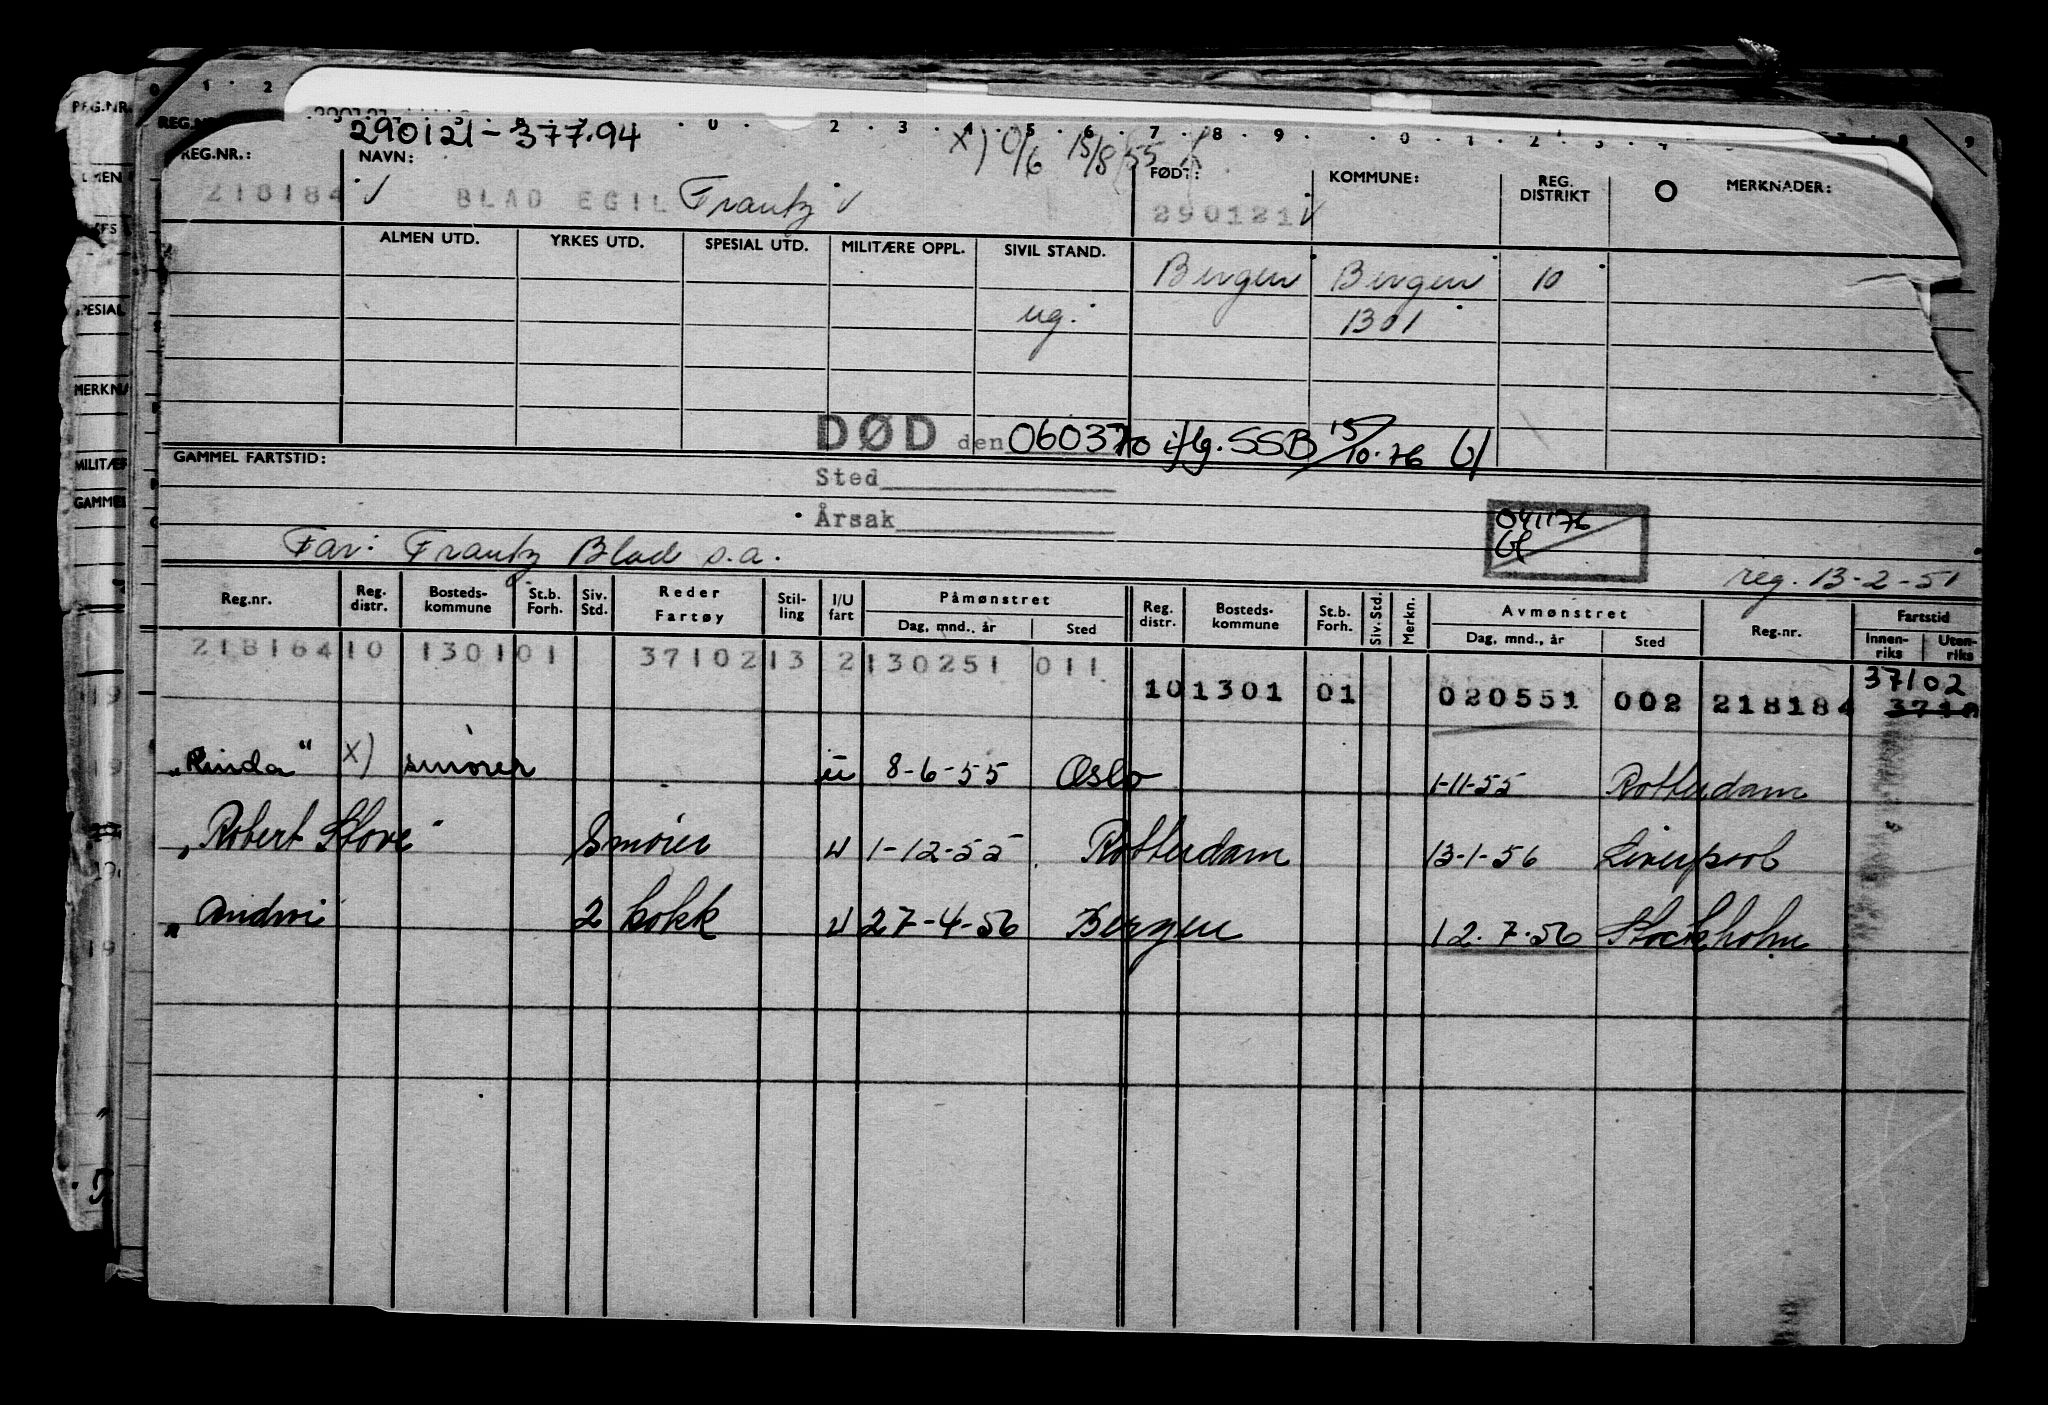 0 1 2
REG.NR.
290121-377.94
0 . 2 . 3 . 4 . 5 . 6 . 7 . 8 . 9 . 0 . 1 . 2 3
x) 0/6 15/8 55
REG.NR.: NAVN: FØDT: KOMMUNE: REG. DISTRIKT O MERKNADER:
218184 √ BLAD EGIL Frantz √ 290121 √
ALMEN UTD. YRKES UTD. SPESIAL UTD. MILITÆRE OPPL. SIVIL STAND.
Bergen Bergen 10
ug. 1301
DØD den 060370 iflg. SSB 15/10-76
GAMMEL FARTSTID:
Sted
Årsak
041176
Far: Frantz Blad s.a.
reg. 13-2-51
Reg.nr. Reg. distr. Bosteds- kommune St.b. Forh. Siv. Std. Reder Fartøy Stil- ling I/U fart Påmønstret Dag, mnd., år Sted Reg. distr. Bosteds- kommune St.b. Forh. Siv. Std. Merkn. Avmønstret Dag, mnd., år Sted Reg.nr. Fartstid Innen- riks Uten- riks
218184 10 1301 01 37102 13 2 130251 011
10 1301 01 020551 002 218184 37102
"Rinda" x) smører u 8-6-55 Oslo 1-11-55 Rotterdam
"Robert Stove" Smører u 1-12-55 Rotterdam 13-1-56 Liverpool
" 2 kokk u 27-4-56 Bergen 12.7.56 Stockholm